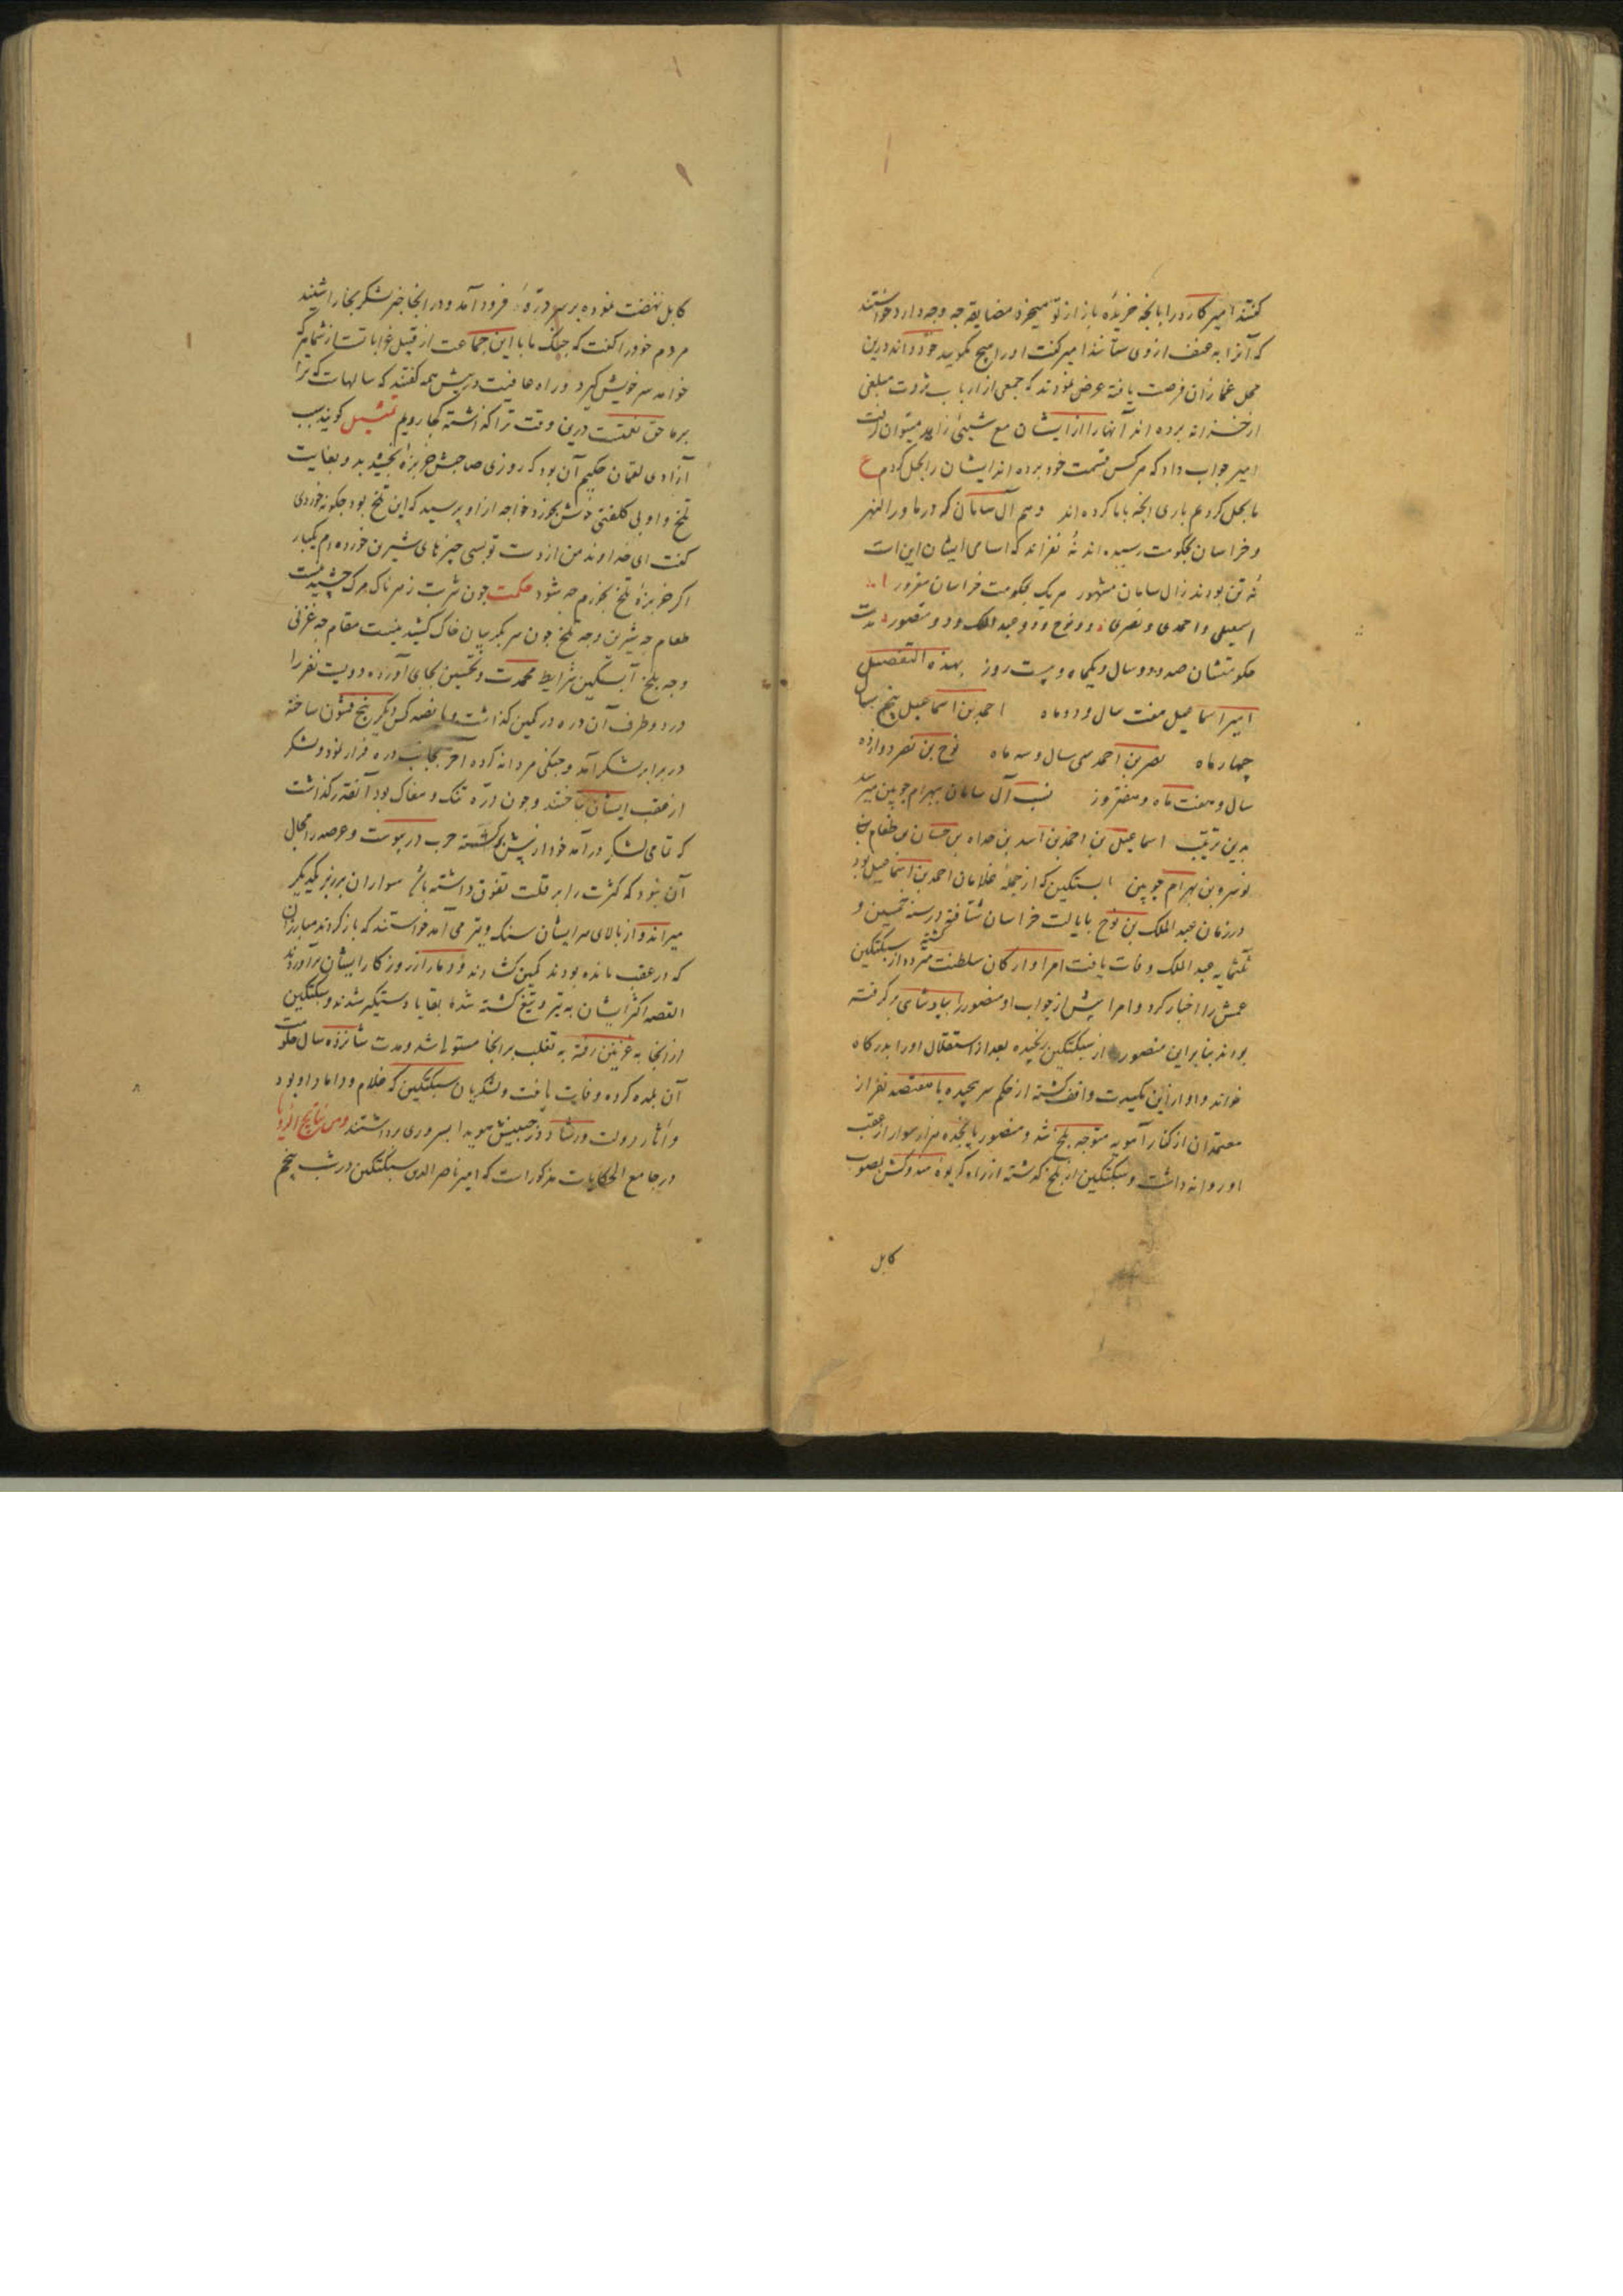 گفتند امیر کارد را بانچه خریدهٔ باز از تو میخرد مضایقه چه وجه دارد خواستند
که آنرا به عنف از وی ستانند امیر گفت او را هیچ مگویید خود داند درین
محل غمازان فرصت یافته عرض نمودند که جمعی از ارباب ثروت مبلغی
از خزانه برده اند آنها را از ایشان مع شیئی زاید میتوان گرفت
امیر جواب داد که هر کس قسمت خود برده اند ایشان را بحل کردم ع
ما بحل کردیم باری انچه با ما کرده اند وهم آل سامان که در ماورا النهر
و خراسان بحکومت رسیده اند نه نفر اند که اسامی ایشان این است
نه تن بودند ز آل سامان مشهور هر یک بحکومت خراسان مغرور
اسمعیلی و احمدی و نصری دو نوح و دو عبد الملک و دو منصور مدت
حکومتشان صد و دو سال و یکماه و بیست روز بهذه التفصیل
امیر اسماعیل هفت سال و دو ماه احمد بن اسماعیل پنج سال
چهار ماه نصر بن احمد سی سال و سه ماه نوح بن نصر دوازده
سال و هفت ماه و هفتروز نسب آل سامان ببهرام چوبین میرسد
بدین ترتیب اسماعیل بن احمد بن اسد بن خداه بن بن طغام بن
نوسره بن بهرام چوبین ابستکین که از جملهٔ غلامان احمد بن اسماعیل بود
در زمان عبد الملک بن نوح بایالت خراسان شتافته در سنه خمسین و
ثلثمایه عبد الملک وفات یافت امرا و ارکان سلطنت متردد گشته از سبکتکین
عمش را اخبار کرد و امرا پیش از جواب او منصور را بپادشاهی برگرفته
بودند بنابراین منصور از سبکتکین رنجیده بعد از استقلال او را بدرگاه
خواند و او ازین مکیدت واقف گشته از حکم سر پیچیده با هفتصد نفر از
معتمدان از کنار آمویه متوجه بلخ شد و منصور پانجده هزار سوار از عقب
او روانه داشت و سبکتکین از بلخ گذشته از راه گریوهٔ هندوکش بصوب
کابل
کابل نهضت نموده بر سر درهٔ فرود آمد و در انجا خبر لشکر بخارا شنید
مردم خود را گفت که جنگ ما با این جماعت از قبیل غرابات است از شما هر که
خواهد سر خویش گیرد و راه عافیت در پیش همه گفتند که سالهاست که ترا
بر ما حق نعمتست درین وقت ترا گذاشته کجا رویم تمثیل گویند سبب
آزادی لقمان حکیم آن بود که روزی صاحبش خربزهٔ بخشید بد و بغایت
تلخ و او بی کلفتی خوش بخورد خواجه از او پرسید که این تلخ بود چگونه خوردی
گفت ای خداوند من از دست تو بسی چیزهای شیرین خورده ام یکبار
اگر خربزهٔ تلخ بخورم چه شود حکمت چون شربت زهرناک مرک چشیدنیست
طعام چه شیرین و چه تلخ چون سر بگریبان خاک کشیدنیست مقام چه غزنی
و چه بلخ آبستکین شرایط محمدت و تحسین بجای آورده دویست نفر را
در دو طرف آن دره در کمین گذاشت و پانصد کس دیگر پنج قشون ساخته
در برابر لشکر آمد و جنگی مردانه کرده آخر بجانب دره فرار نمود و لشکر
از عقب ایشان تاختند و چون دره تنگ و مغاک بود آنقدر گذاشت
که تمامی لشکر درآمد خود از پیش برگشته حرب در پیوست و عرصه را مجال
آن نبود که کثرت را بر قلت تفوق داشته باشد سواران بر زبر یکدیگر
میراند و از بالای سر ایشان سنگ و تیر می آمد خواستند که بازگردند مبارزان
که در عقب مانده بودند کمین گشادند و دمار از روزگار ایشان برآوردند
القصه اکثر ایشان به تیر و تیغ کشته شد بقایا دستگیر شدند و سبکتکین
از انجا به غزنین رفته به تغلب بر انجا مستولی شد و مدت شانزده سال حکومت
آن بلده کرده وفات یافت و لشکریان سبکتکین که غلام و داماد او بود
و آثار دولت و رشاد در جبینش هویدا بسروری برداشتند ومن نتایج الرویا
در جامع الحکایات مذکور است که امیر ناصر الدین سبکتکین در شب پنجم